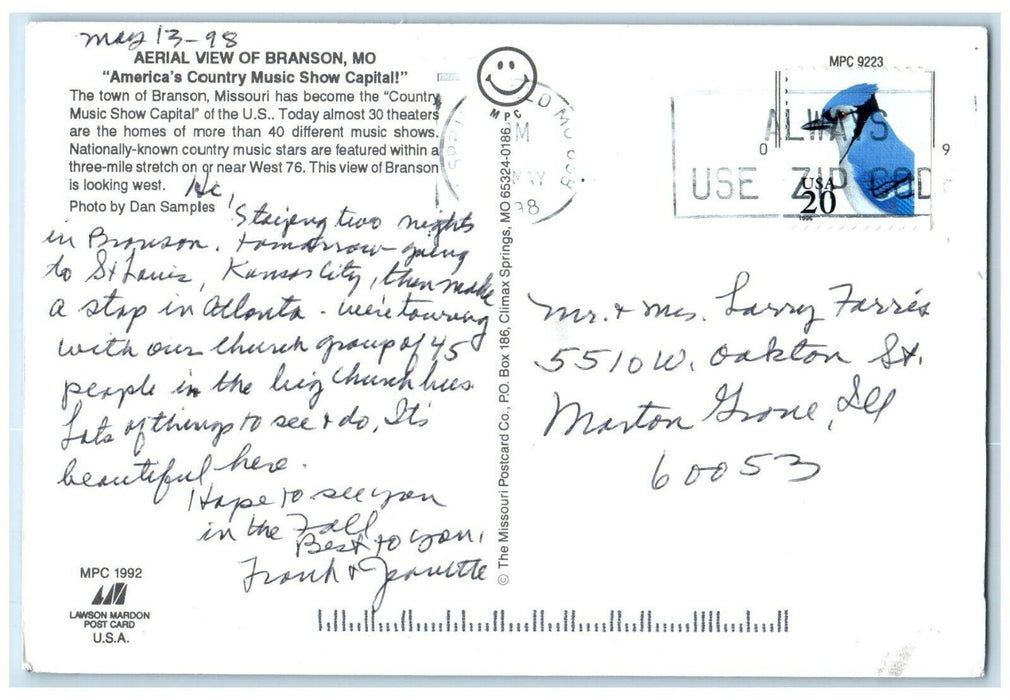 May 13-98
AERIAL VIEW OF BRANSON, MO
"America's Country Music Show Capital!"
The town of Branson, Missouri has become the "Country
Music Show Capital" of the U.S.. Today almost 30 theaters
are the homes of more than 40 different music shows.
Nationally-known country music stars are featured within a
three-mile stretch on or near West 76. This view of Branson
is looking west.
Photo by Dan Samples
Hi,
Staying two nights
in Branson. tomorrow going
to St Louis, Kansas City, then make
a stop in Atlanta - we're touring
with our Church group of 45
people in the big Church bus.
Lots of things to see & do, It's
beautiful here.
Hope to see you
in the Fall
Best to you,
Frank & Jeanette
MPC 1992
LAWSON MARDON
POST CARD
U.S.A.
MPC
© The Missouri Postcard Co., P.O. Box 186, Climax Springs, MO 65324-0186
MPC 9223
PM
MAY
98
ALWAYS
USE ZIP CODE
USA
20
1996
Mr. & Mrs. Larry Farris
5510 W. Oakton St.
Morton Grove, Ill
60053